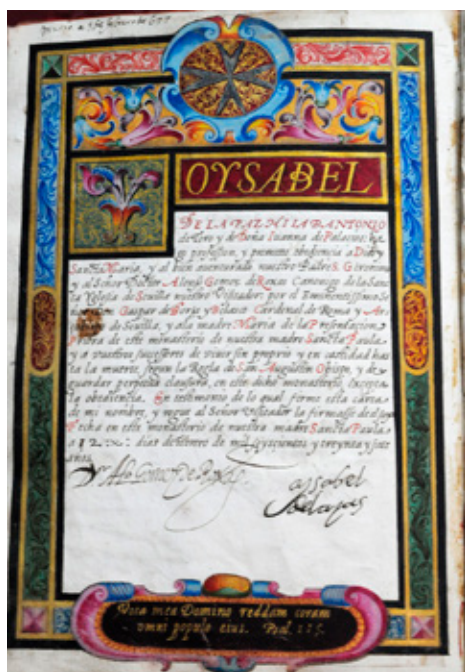 YOYSABEL
DE LA PALMILLA DANTONIO
de Toro y de Doña Iuanna de Palacios: ha
go profession, y prometo obediencia a Dios y
Sancta Maria, y al bien aventurado nuestro Padre S. Geronimo
y al Señor Doctor Alonso Gomez de Roxas Canonigo de la Sanc
ta Yglesia de Sevilla nuestro Visitador: por el Eminentissimo Se
nor Don Gaspar de Borja y Velasco Cardenal de Roma y Ar
de Sevilla, y a la madre Maria de la Presentacion
Priora de este monasterio de nuestra madre Sancta Paula,
y a vuestros successores de vivir sin proprio y en castidad has
ta la muerte, segun la Regla de San Augustin Obispo, y de
guardar perpetua clausura, en este dicho monasterio, excepta
la obediencia. En testimonio de lo qual firme esta carta
de mi nombre, y rogue al Señor Visitador la firmasse
Fecha en este monasterio de nuestra madre Sancta Paula
a 12 dias de febrero de mil y seyscientos y treynta y siete
años.
Dr Alo Gomez de Roxas
ysabel
Vota mea Domino reddam coram
omni populo eius. Psal. 115.